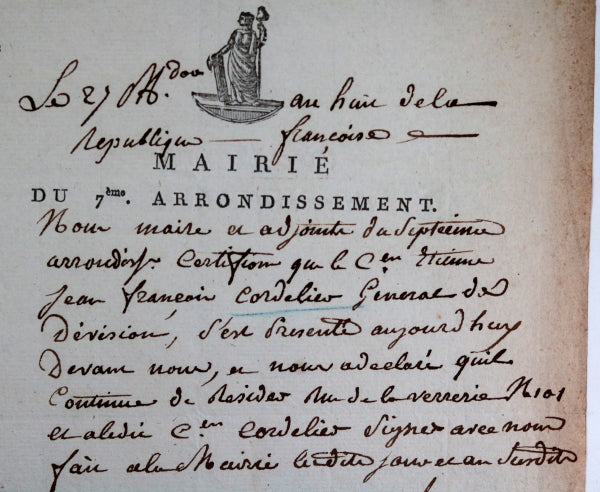 Le 27 Th.dor an huit de la
republique françoise
MAIRIE
DU 7ème. ARRONDISSEMENT.
Nous maire et adjoints du Septieme
arrondisst. Certifions que le Cen Etienne
jean françois Cordelier General de
Dévision, s'est Presenté aujourd'huy
Devant nous, et nous a declaré qu'il
Continue de Resider Rue de la verrerie N 101
et a ledit Cen Cordelier Signer avec nous
fait a la Mairie ledits jour et an Susdits